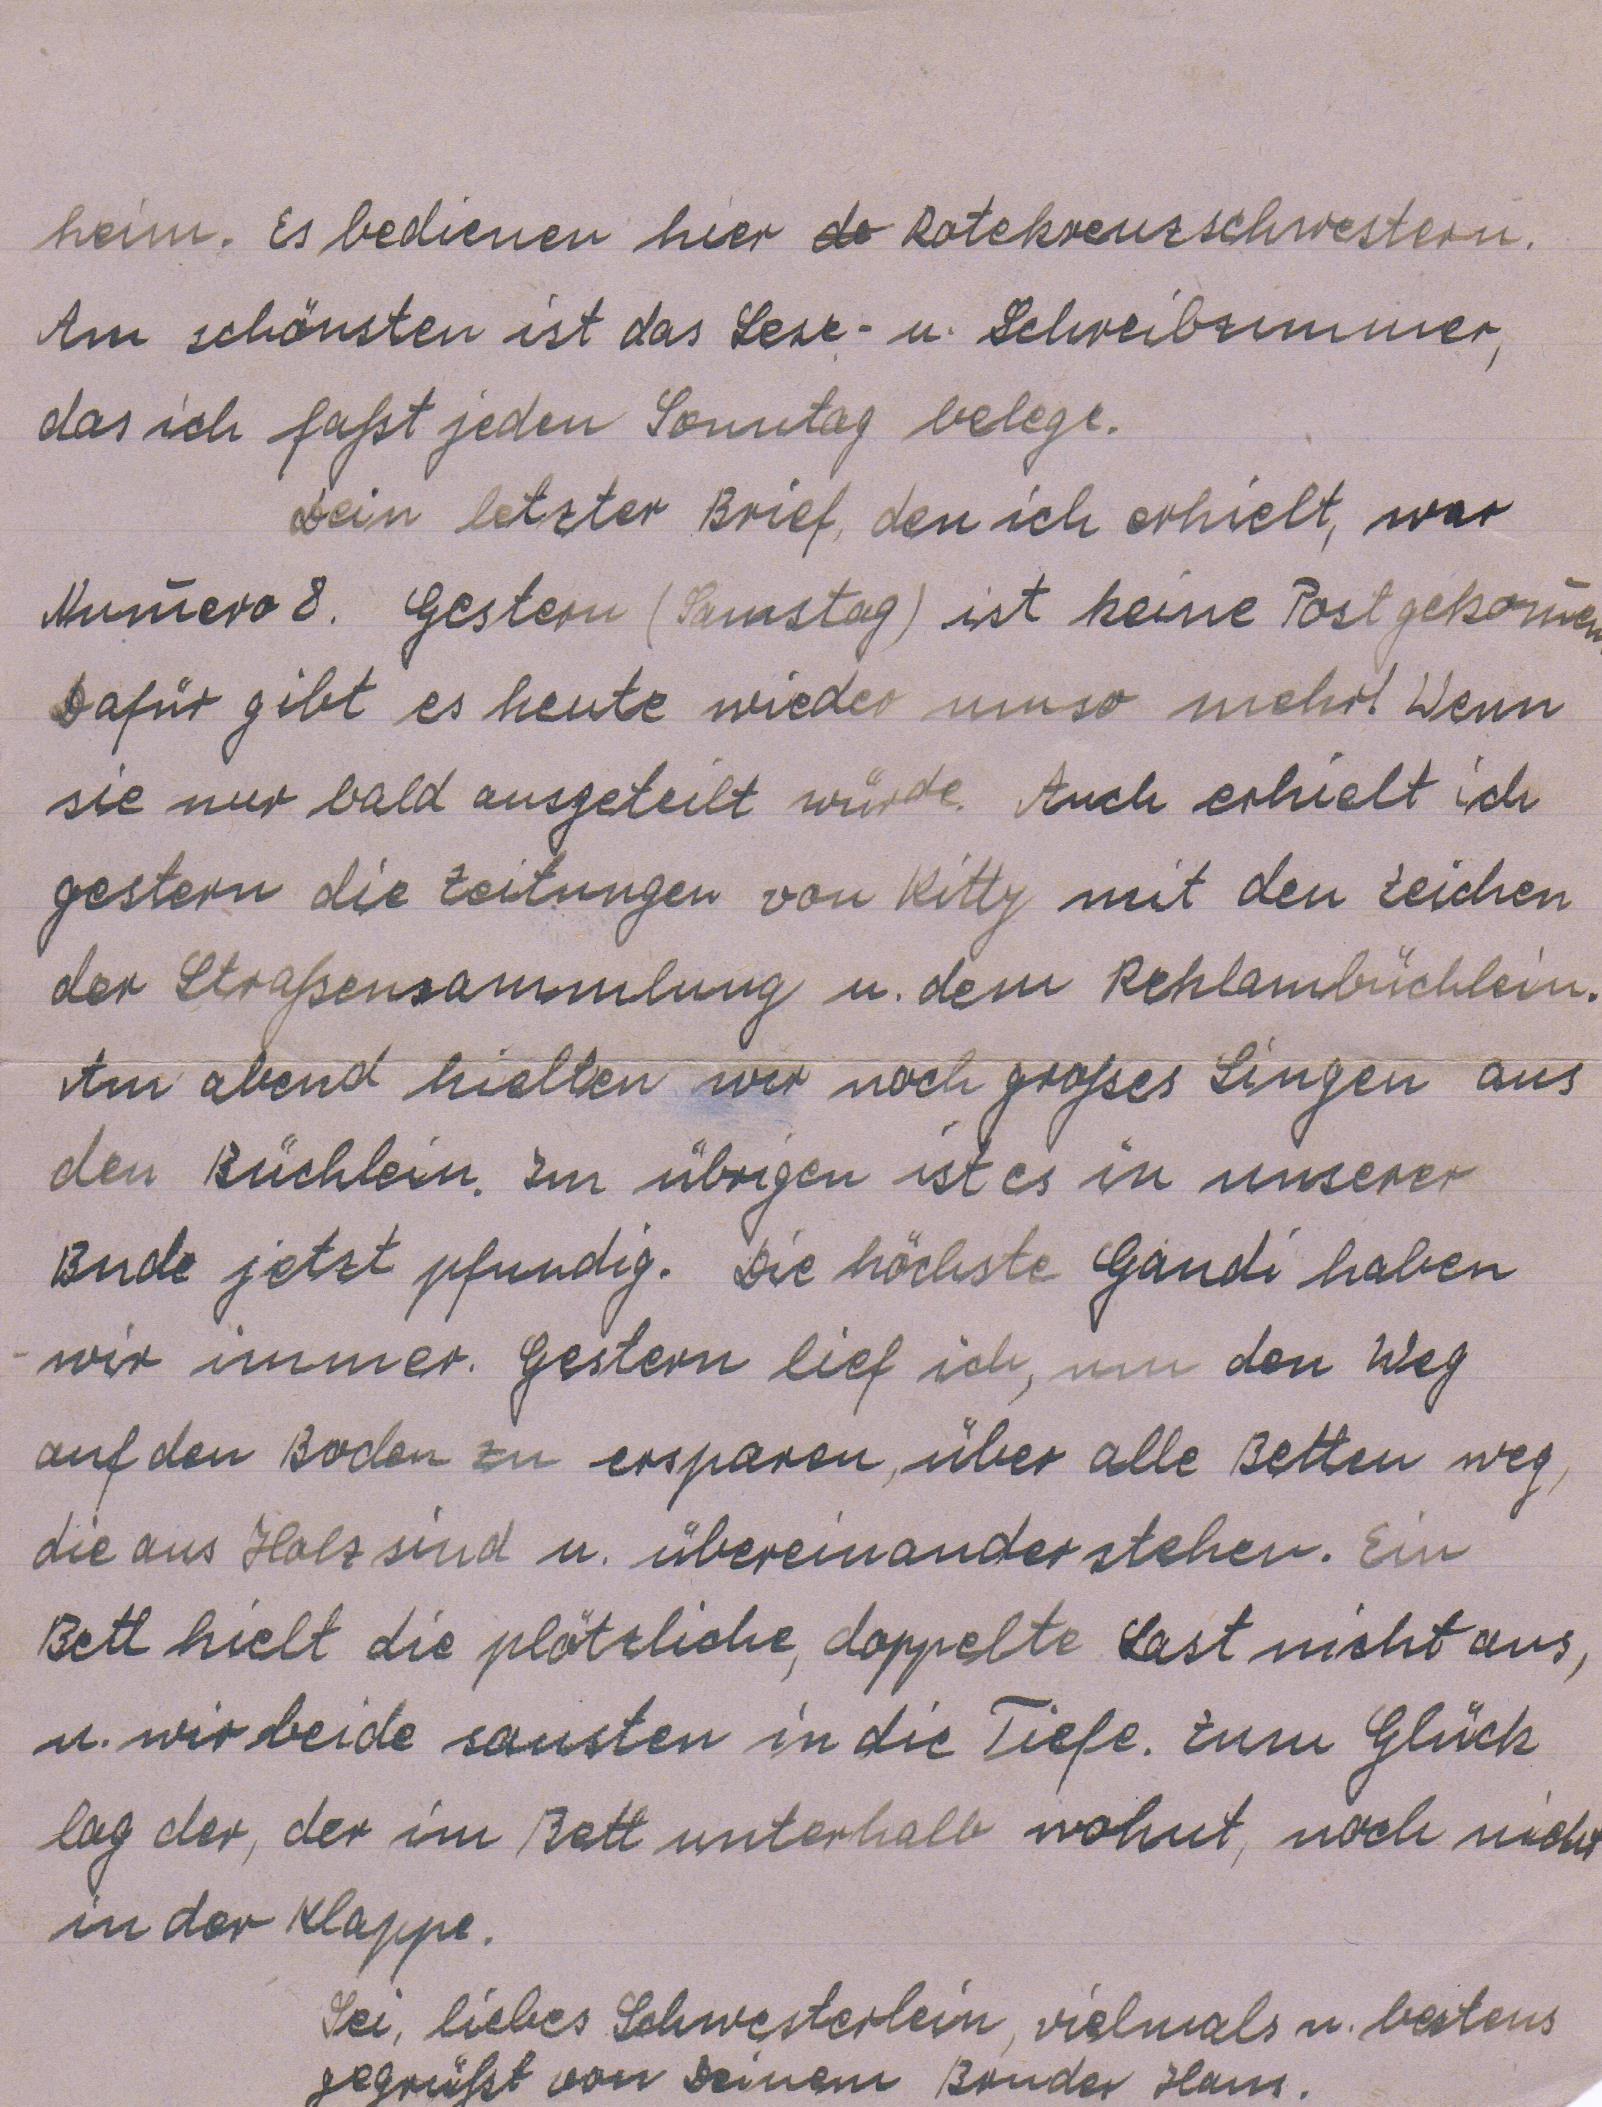 heim. Es bedienen hier de Rotekreuzschwestern.
Am schönsten ist das Lese- u. Schreibzimmer,
das ich faßt jeden Sonntag belege.
Dein letzter Brief, den ich erhielt, war
Num̄ero 8. Gestern (Samstag) ist keine Post gekom̄en.
Dafür gibt es heute wieder umso mehr! Wenn
sie nur bald ausgeteilt würde. Auch erhielt ich
gestern die Zeitungen von Kitty mit den Zeichen
der Straßensammlung u. dem Reklambüchlein.
Am abend hielten wir noch großes Singen aus
den Büchlein. Im übrigen ist es in unserer
Bude jetzt pfundig. Die höchste Gaudi haben
wir immer. Gestern lief ich, um den Weg
auf den Boden zu ersparen, über alle Betten weg,
die aus Holz sind u. übereinander stehen. Ein
Bett hielt die plötzliche, doppelte Last nicht aus,
u. wir beide sausten in die Tiefe. Zum Glück
lag der, der im Bett unterhalb wohnt, noch nicht
in der Klappe.
Sei, liebes Schwesterlein, vielmals u. bestens
gegrüßt von Deinem Bruder Hans.